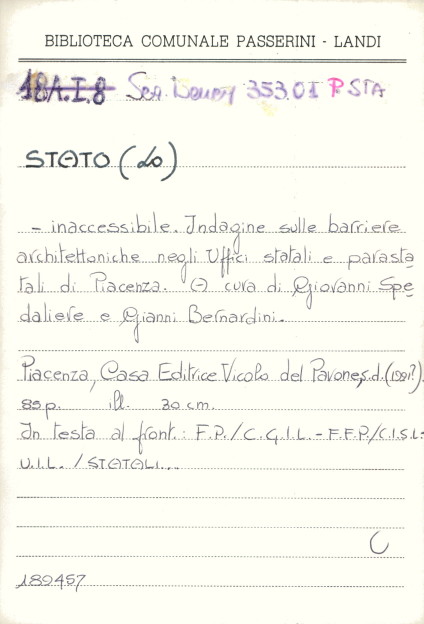 BIBLIOTECA COMUNALE PASSERINI - LANDI
18A.I.8 Sez. Dewey 353.01 P STA
STATO (Lo)
- inaccessibile. Indagine sulle barriere
architettoniche negli Uffici statali e parasta
tali di Piacenza. A cura di Giovanni Spe
daliere e Gianni Bernardini.
Piacenza, Casa Editrice Vicolo del Pavone, s.d. (1981?).
85 p. ill. 30 cm.
In testa al front.: F.P./C.G.I.L.-F.F.P./C.I.S.L.-
U.I.L./STATALI...
C
189457